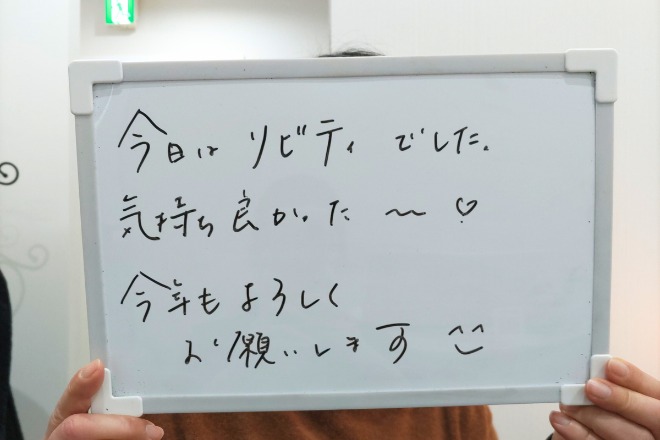 今日は リビティ でした。
気持ち良かった 〜 ♡
今年もよろしく
お願いします ^^